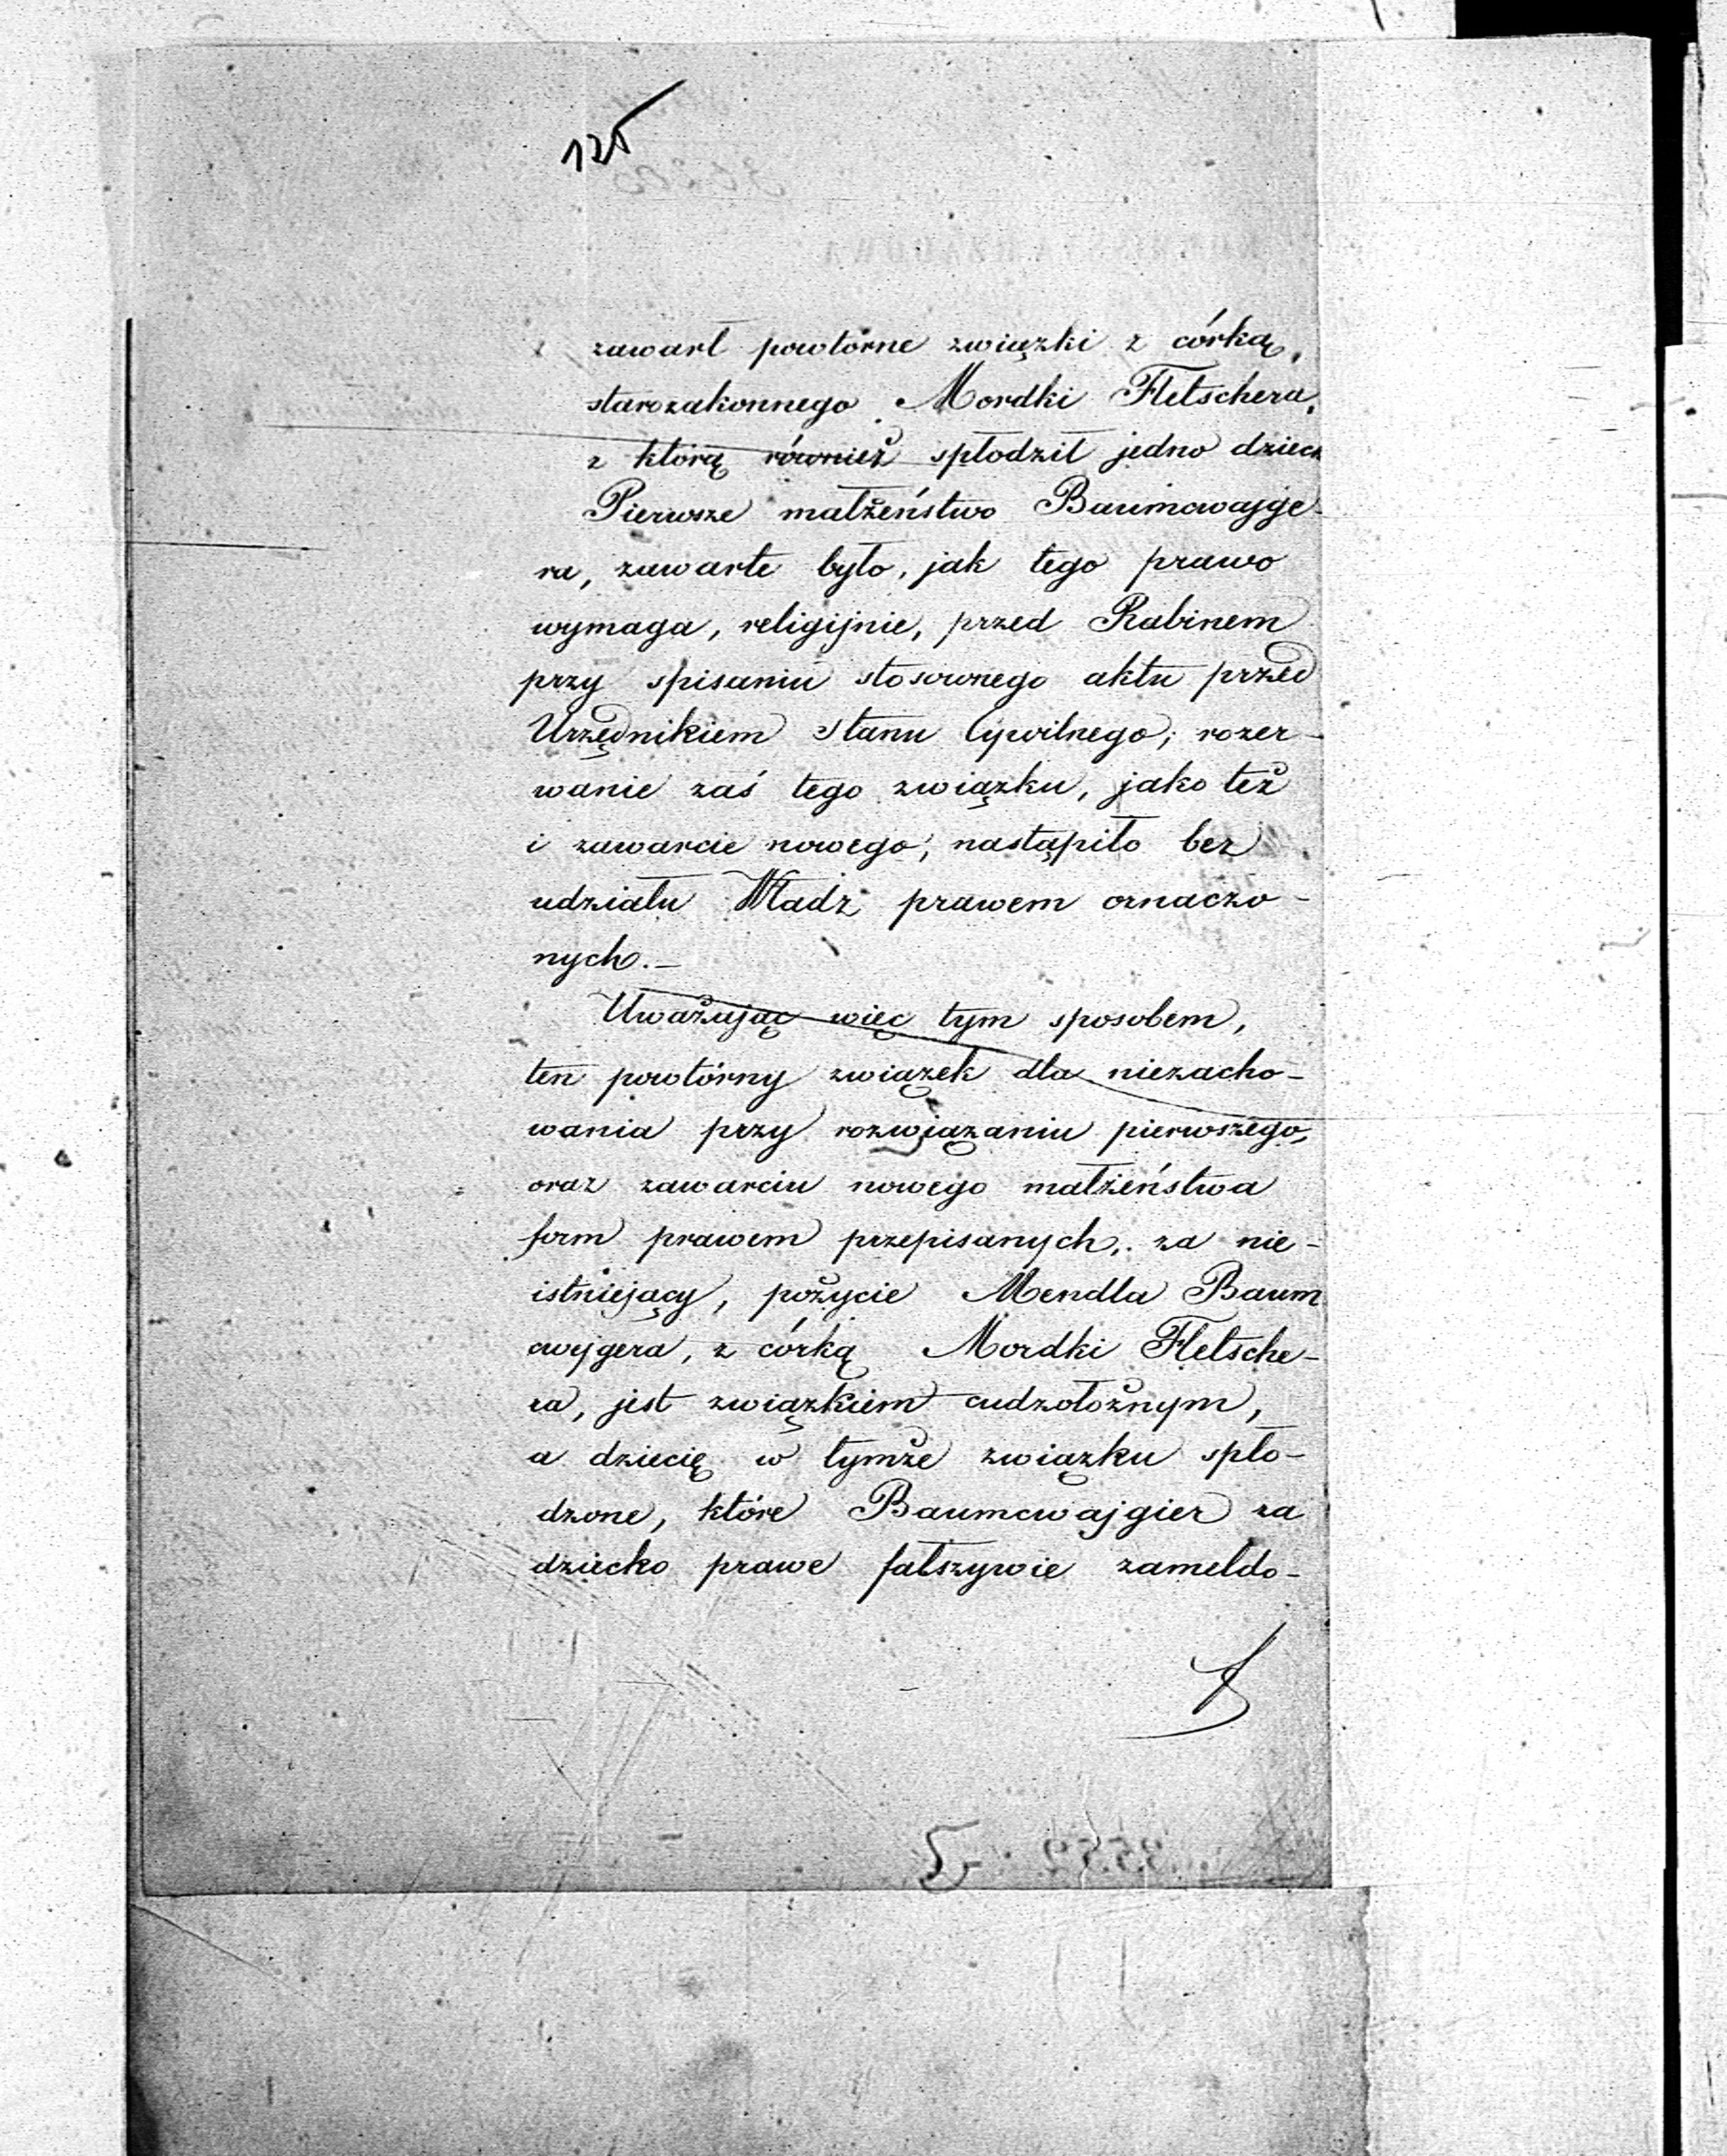 125
zawarł powtórne związki z córką
starozakonnego Mordki Fletschera,
z którą również spłodził jedno dziecko
Pierwsze małżeństwo Baumcwajge-
ra, zawarte było, jak tego prawo
wymaga, religijnie, przed Rabinem
przy spisaniu stosownego aktu przed
Urzędnikiem Stanu Cywilnego; rozer-
wanie zaś tego związku, jako też
i zawarcie nowego, nastąpiło bez
udziału Władz prawem oznaczo-
nych.–
Uważając więc tym sposobem,
ten powtórny związek dla niezacho-
wania przy rozwiązaniu pierwszego,
oraz zawarciu nowego małżeństwa
form prawem przepisanych, za nie-
istniejący, pożycie Mendla Baum
cwejgera, z córką Mordki Fletsche-
ra, jest związkiem cudzołożnym,
a dziecię w tymże związku spło-
dzone, które Baumcwajgier za
dziecko prawe fałszywie zameldo-